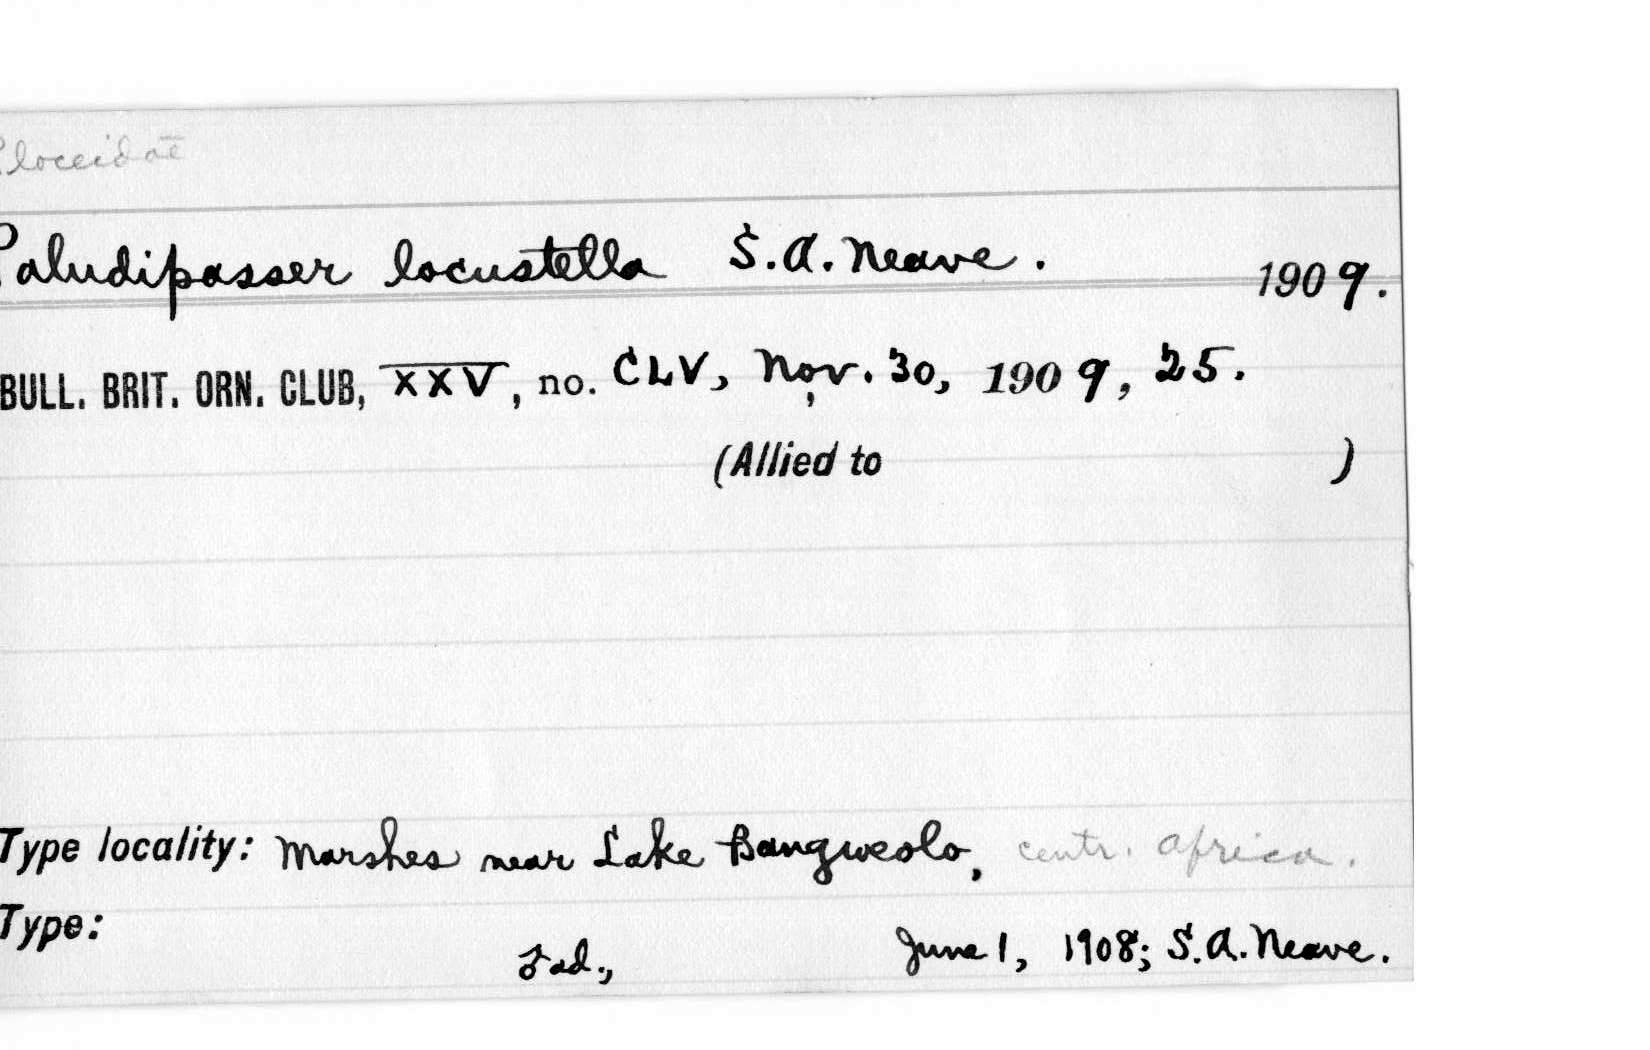 Ploceidae
Paludipasser locustella S.A. Neave. 1909.
BULL. BRIT. ORN. CLUB, XXV, no. CLV, Nov. 30, 1909, 25.
(Allied to )
Type locality: Marshes near Lake Bangweolo, centr. Africa.
Type:
♂ ad., June 1, 1908; S.A. Neave.